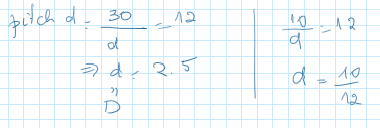 pitch d = 30/d = 12
⇒ d = 2.5
"
D
10/d = 12
d = 10/12